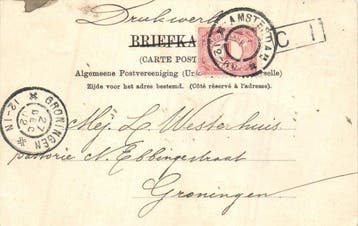 Drukwerk
AMSTERDAM
BRIEFKA
C I
(CARTE POST
Algemeene Postvereeniging (Un selle)
Zijde voor het adres bestemd. (Côté réservé à l'adresse.)
GRONINGEN
27
DEC
02
12-1N
Mej. L. Westerhuis
pastorie N. Ebbingestraat
Groningen